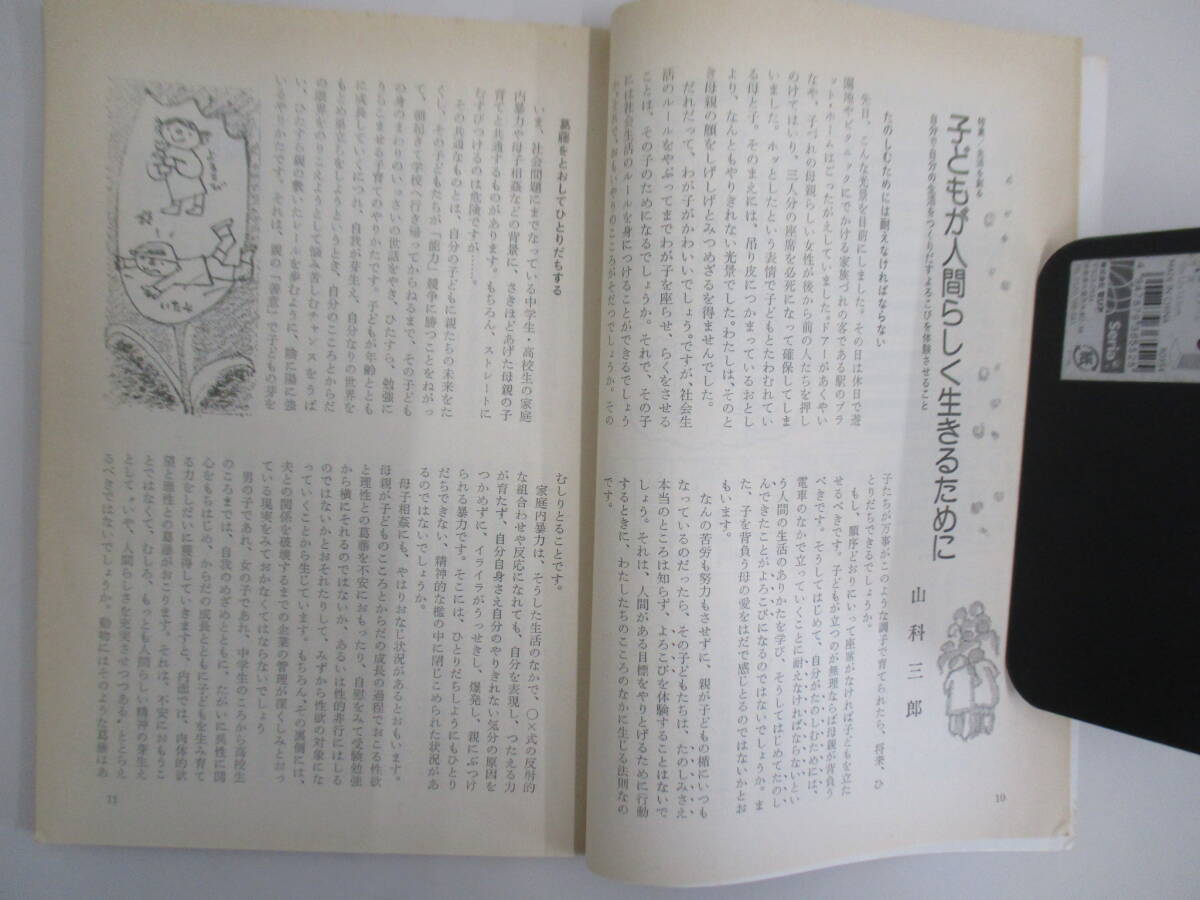 特集/生活を創る
子どもが人間らしく生きるために
自分で自分の生活をつくりだすよろこびを体験させること
山科三郎
たのしむためには耐えなければならない
先日、こんな光景を目前にしました。その日は休日で遊
園地やピクニックにでかける家族づれの客である駅のプラ
ットホームはごったがえしていました。ドアーがあくやい
なや、子づれの母親らしい女性が後から前の人たちを押し
のけてはいり、三人分の座席を必死になって確保してしま
いました。ホッとしたという表情で子どもとたわむれてい
る母と子。そのまえには、吊り皮につかまっているおとし
より、なんともやりきれない光景でした。わたしは、そのと
き母親の顔をしげしげとみつめざるを得ませんでした。
だれだって、わが子がかわいいでしょう。ですが、社会生
活のルールをやぶってまでわが子を座らせ、らくをさせる
ことは、その子のためになるでしょうか。それで、その子
には社会生活のルールを身につけることができるでしょう
か。それで、おもいやりのこころがそだつでしょうか。その
子たちが万事がこのような調子で育てられたら、将来、ひ
とりだちできるでしょうか。
もし、順序どおりにいって座席がなければ子どもを立た
せるべきです。子どもが立つのが無理ならば母親が背負う
べきです。そうしてはじめて、自分がたのしむためには、
電車のなかで立っていくことに耐えなければならないとい
う人間の生活のありかたを学び、そうしてはじめてたのし
んできたことがよろこびになるのではないでしょうか。ま
た、子を背負う母の愛をはだで感じとるのではないかとお
もいます。
なんの苦労も努力もさせずに、親が子どもの楯にいつも
なっているのだったら、その子どもたちは、たのしみさえ
本当のところは知らず、よろこびを体験することはないで
しょう。それは、人間がある目標をやりとげるために行動
するときに、わたしたちのこころのなかに生じる法則なの
です。
10
葛藤をとおしてひとりだちする
いま、社会問題にまでなっている中学生・高校生の家庭
内暴力や母子相姦などの背景に、さきほどあげた母親の子
育てと共通するものがあります。もちろん、ストレートに
むすびつけるのは危険ですが……。
その共通なものとは、自分の子どもに親たちの未来をた
くし、その子どもたちが「能力」競争に勝つことをねがっ
て、朝起きて学校へ行き帰ってからねるまで、その子ども
の身のまわりのいっさいの世話をやき、ひたすら、勉強に
りきこませる子育てのやりかたです。子どもが年齢ととも
に成長していくにつれ、自我が芽生え、自分なりの世界を
もとめ親ばなれをしようというとき、自分のこころとからだ
の限界をのりこえようとして悩み苦しむチャンスをうば
い、ひたすら親の敷いたレールを歩むように、陰に陽に強
いるやりかたです。それは、親の「善意」で子どもの芽を
いたみ
むしりとることです。
家庭内暴力は、そうした生活のなかで、○×式の反射的
な組合わせや反応になれても、自分を表現し、つたえる力
が育たず、自分自身さえ自分のやりきれない気分の原因を
つかめずに、イライラがうっせきし、爆発し、親にぶつけ
られる暴力です。そこには、ひとりだちしようにもひとり
だちできない、精神的な檻の中に閉じこめられた状況があ
るのではないでしょうか。
母子相姦にも、やはりおなじ状況があるとおもいます。
母親が子どものこころとからだの成長の過程でおこる性欲
と理性との葛藤を不安におもったり、自慰をみて受験勉強
から横にそれるのではないか、あるいは性的非行にはしる
のではないかとおそれたりして、みずから性欲の対象にな
っていくことから生じています。もちろん、その裏側には、
夫との関係を破壊するまでの企業の管理が深くしみとおっ
ている現実をみておかなくてはならないでしょう
男の子であれ、女の子であれ、中学生のころから高校生
のころまでは、自我のめざめとともに、たがいに異性に関
心をもちはじめ、からだの成長とともに子どもを生み育て
る力をしだいに獲得していきますと、内部では、肉体的欲
望と理性との葛藤がおこります。それは、不安におもうこ
とではなくて、むしろ、もっとも人間らしい精神の芽生え
として、いや、人間らしさを充実させつつある、ととらえ
るべきではないでしょうか。動物にはそのような葛藤はあ
11
Seria